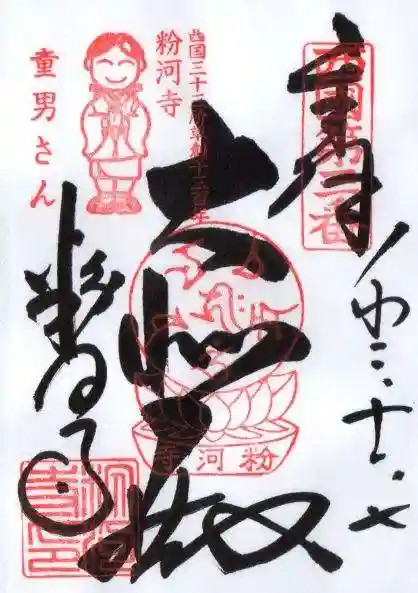 奉拝
西国第三番
大悲殿
西国三十三所草創千三百年
粉河寺
童男さん
粉河寺
粉河寺